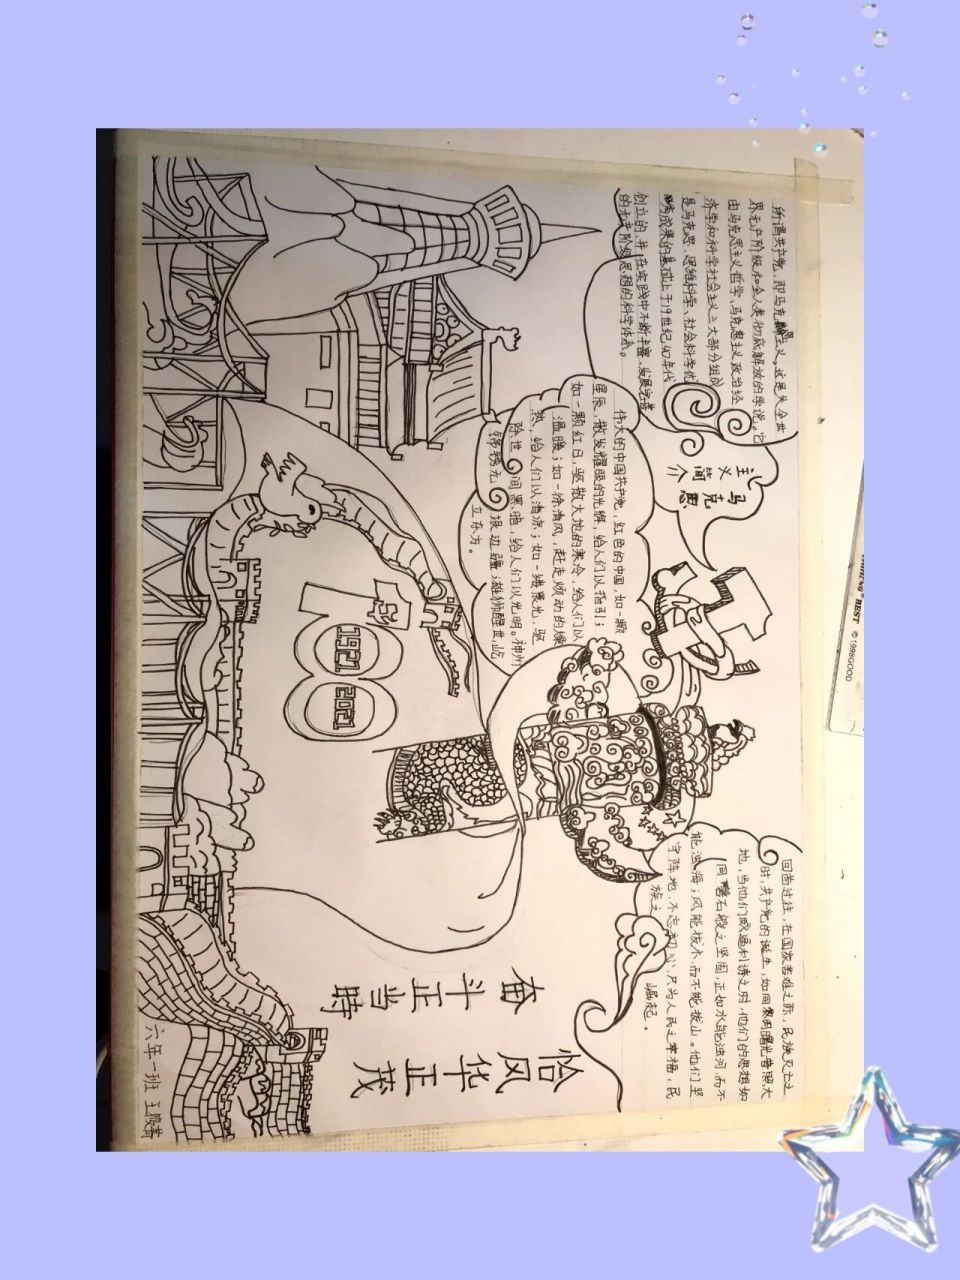 所谓共产党,即马克思主义。这是关全世
界无产阶级和全人类彻底解放的学说。它
由马克思主义哲学、马克思主义政治经
济学和科学社会主义三大部分组成
是马克思,思维科学、社会科学优
秀成果的基础上于19世纪40年代
创立的,并在实践中不断丰富、发展完善
的无产阶级思想的科学体系。
马克思
主义简介
伟大的中国共产党,红色的中国,如一颗
星辰,散发耀眼的光辉,给人们以指引;
如一颗红日,驱散大地的寒冷,给人们以
温暖;如一徐清风,赶走烦动的燥
热,给人们以清凉;如一缕晨光,驱
除世间黑暗,给人们以光明。神州
锦绣无垠边疆;雄狮醒世,屹
立东方。
回首过往,在国家苦难之际,民族灭亡之
时,共产党的诞生,如同曙光普照大
地,当他们威逼利诱之时,他们的思想如
同磐石般之坚固,正如水能浊河,而不
能浊海;风能拔木,而不能拔山。他们坚
守阵地,不忘初心,只为人民之幸福,民
族之崛起。
1921
2021
奋斗正当時
恰风华正茂
六年一班
BEST ©1998GOOD